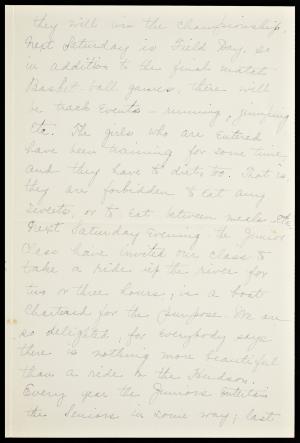 they will win the championship.
Next Saturday is Field Day, so
in addition to the final match
Basket ball games, there will
be track events - running, jumping
etc. The girls who are entered
have been training for some time,
and they have to diet too. That is,
they are forbidden to eat any
sweets, or to eat between meals etc.
Next Saturday evening the Junior
Class have invited our class to
take a ride up the river for
two or three hours, in a boat
chartered for the purpose. We are
so delighted, for everybody says
there is nothing more beautiful
than a ride on the Hudson.
Every year the Juniors entertain
the Seniors in some way; last